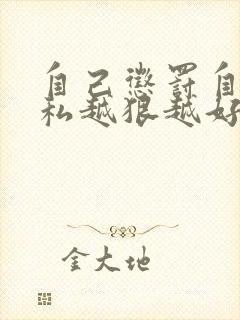 自己惩罚自
私越狠越好
金大地